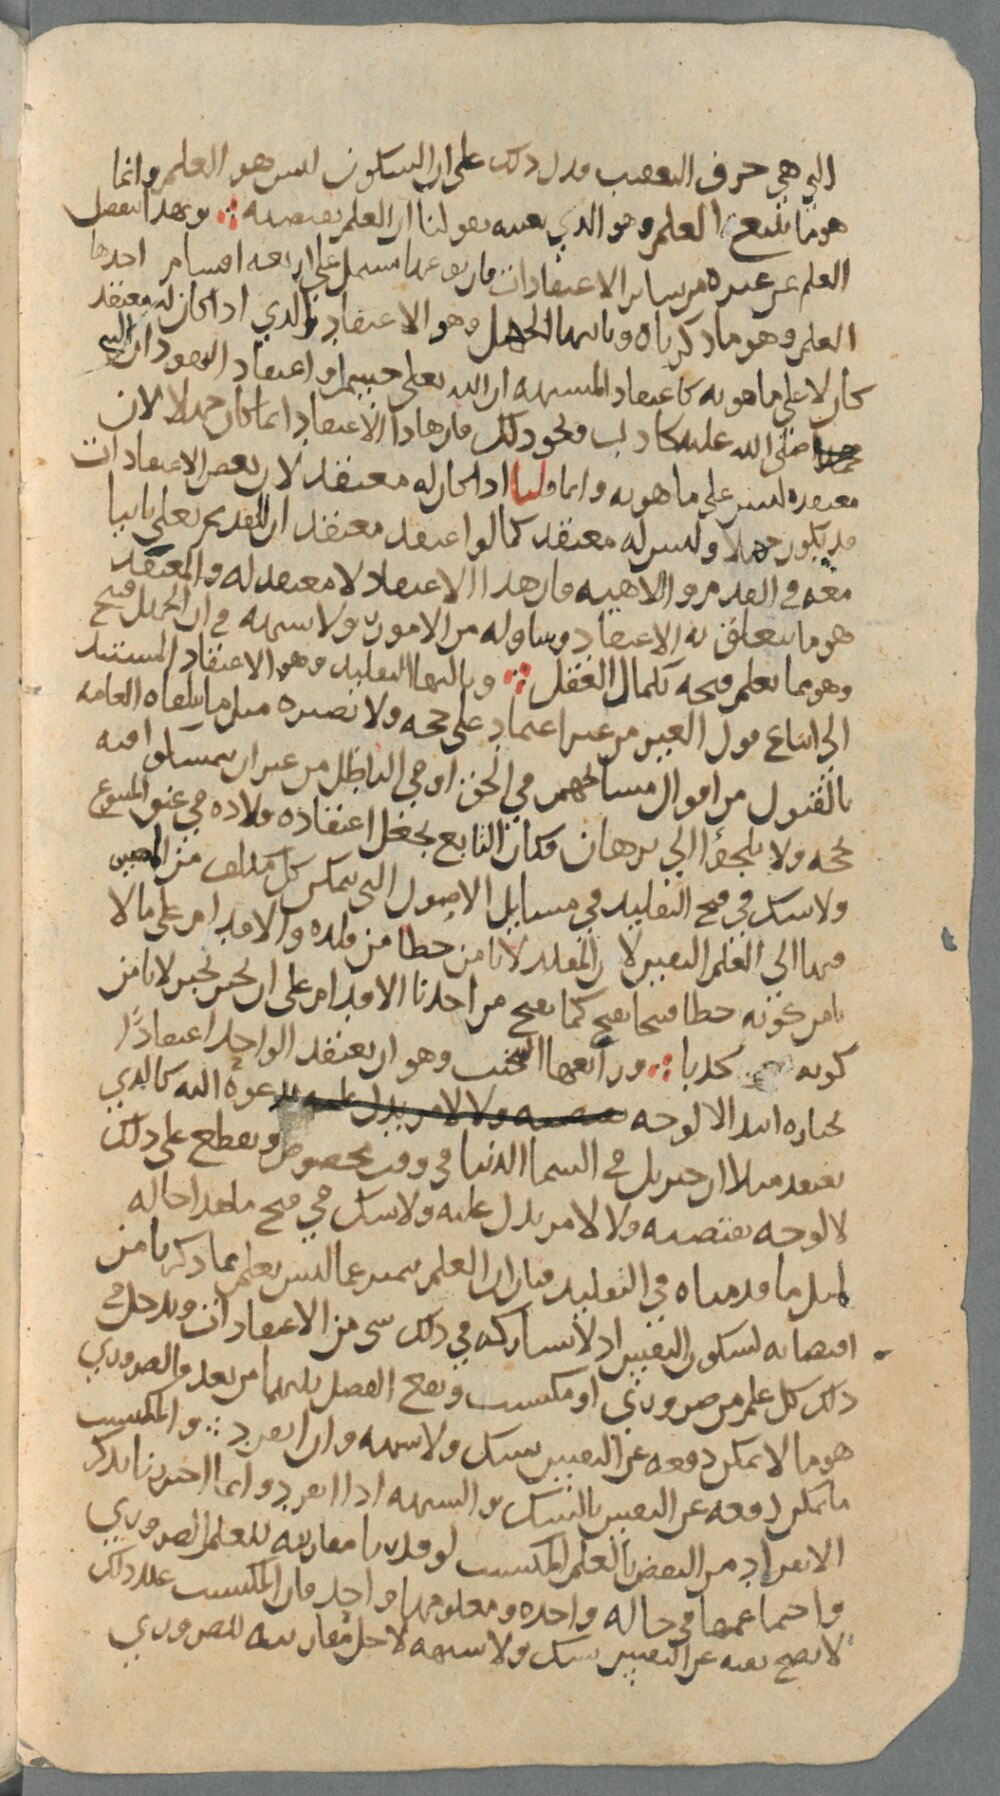 التي هي حرف التعقيب فدل ذلك على ان السكون ليس هو العلم وانما
هو ما يتبع العلم وهو الذي نعنيه بقولنا ان العلم يقتضيه ∴ وبهذا انفصل
العلم عن غيره من ساير الاعتقادات فان نوعها مشتمل على اربعه اقسام احدها
العلم وهو ما ذكرناه وثانيها الجهل وهو الاعتقاد الذي اذا كان له معتقد
كان لا على ما هو به كاعتقاد المشبهه ان الله تعلى جسم او اعتقاد اليهود ان النبي
محمدا صلى الله عليه كاذب ونحو ذلك فان هذا الاعتقاد انما كان جهلا لان
معتقده ليس على ما هو به وانما قلنا اذا كان له معتقد لان بعض الاعتقادات
قد يكون جهلا وليس له معتقد كما لو اعتقد معتقد ان للقديم تعلى ثانيا
معه في القدم والالاهيه فان هذا الاعتقاد لا معتقد له والمعتقد
هو ما يتعلق به الاعتقاد ويتناوله من الامور ولا شبهه في ان الجهل قبيح
وهو مما يعلم قبحه بكمال العقل ∴ وثالثها التقليد وهو الاعتقاد المستند
الى اتباع قول الغير من غير اعتماد على حجه ولا بصيره مثل ما يتلقاه العامه
بالقبول من اقوال مشائخهم في الحق او في الباطل من غير ان يتمسكوا فيه
بحجه ولا يلجؤا الى برهان فكان التابع يجعل اعتقاده قلاده في عنق المتبوع
ولا شك في قبح التقليد في مسايل الاصول التي يمكن كل مكلف من المكلفين
فيها الى العلم اليقين لان المقلد لا يامن خطا من قلده والاقدام على ما لا
يامن كونه خطا قبيحا يقبح كما يقبح من احدنا الاقدام على ان يخبر بخبر لا يامن
كونه كذبا ∴ ورابعها التبخيت وهو ان يعتقد الواحد اعتقادا
يختاره ابتدا لا لوجه يقتضيه ولا لامر يدل عليه يدعوه اليه كالذي
يعتقد مثلا ان جبريل في السما الدنيا في وقت مخصوص ويقطع على ذلك
لا لوجه يقتضيه ولا لامر يدل عليه ولا شك في قبح ما هذا حاله
لمثل ما قدمناه في التقليد فبان ان العلم يتميز عما ليس بعلم بما ذكرنا من
اقتضائه لسكون النفس اذ لا يشاركه في ذلك شي من الاعتقادات ويدخل في
ذلك كل علم من ضروري او مكتسب ويقع الفصل بينهما من بعد فالضروري
هو ما لا يمكن دفعه عن النفس بشك ولا شبهه وان انفرد ∴ والمكتسب
ما يمكن دفعه عن النفس بالشك والشبهه اذا انفرد وانما احترزنا بذكر
الانفراد من البعض بالعلم المكتسب لو قدرنا مقارنته للعلم الضروري
واجتماعهما في حاله واحده ومعلومهما واحد فان المكتسب عند ذلك
لا يصح نفيه عن النفس بشك ولا شبهه لاجل مقارنته للضروري